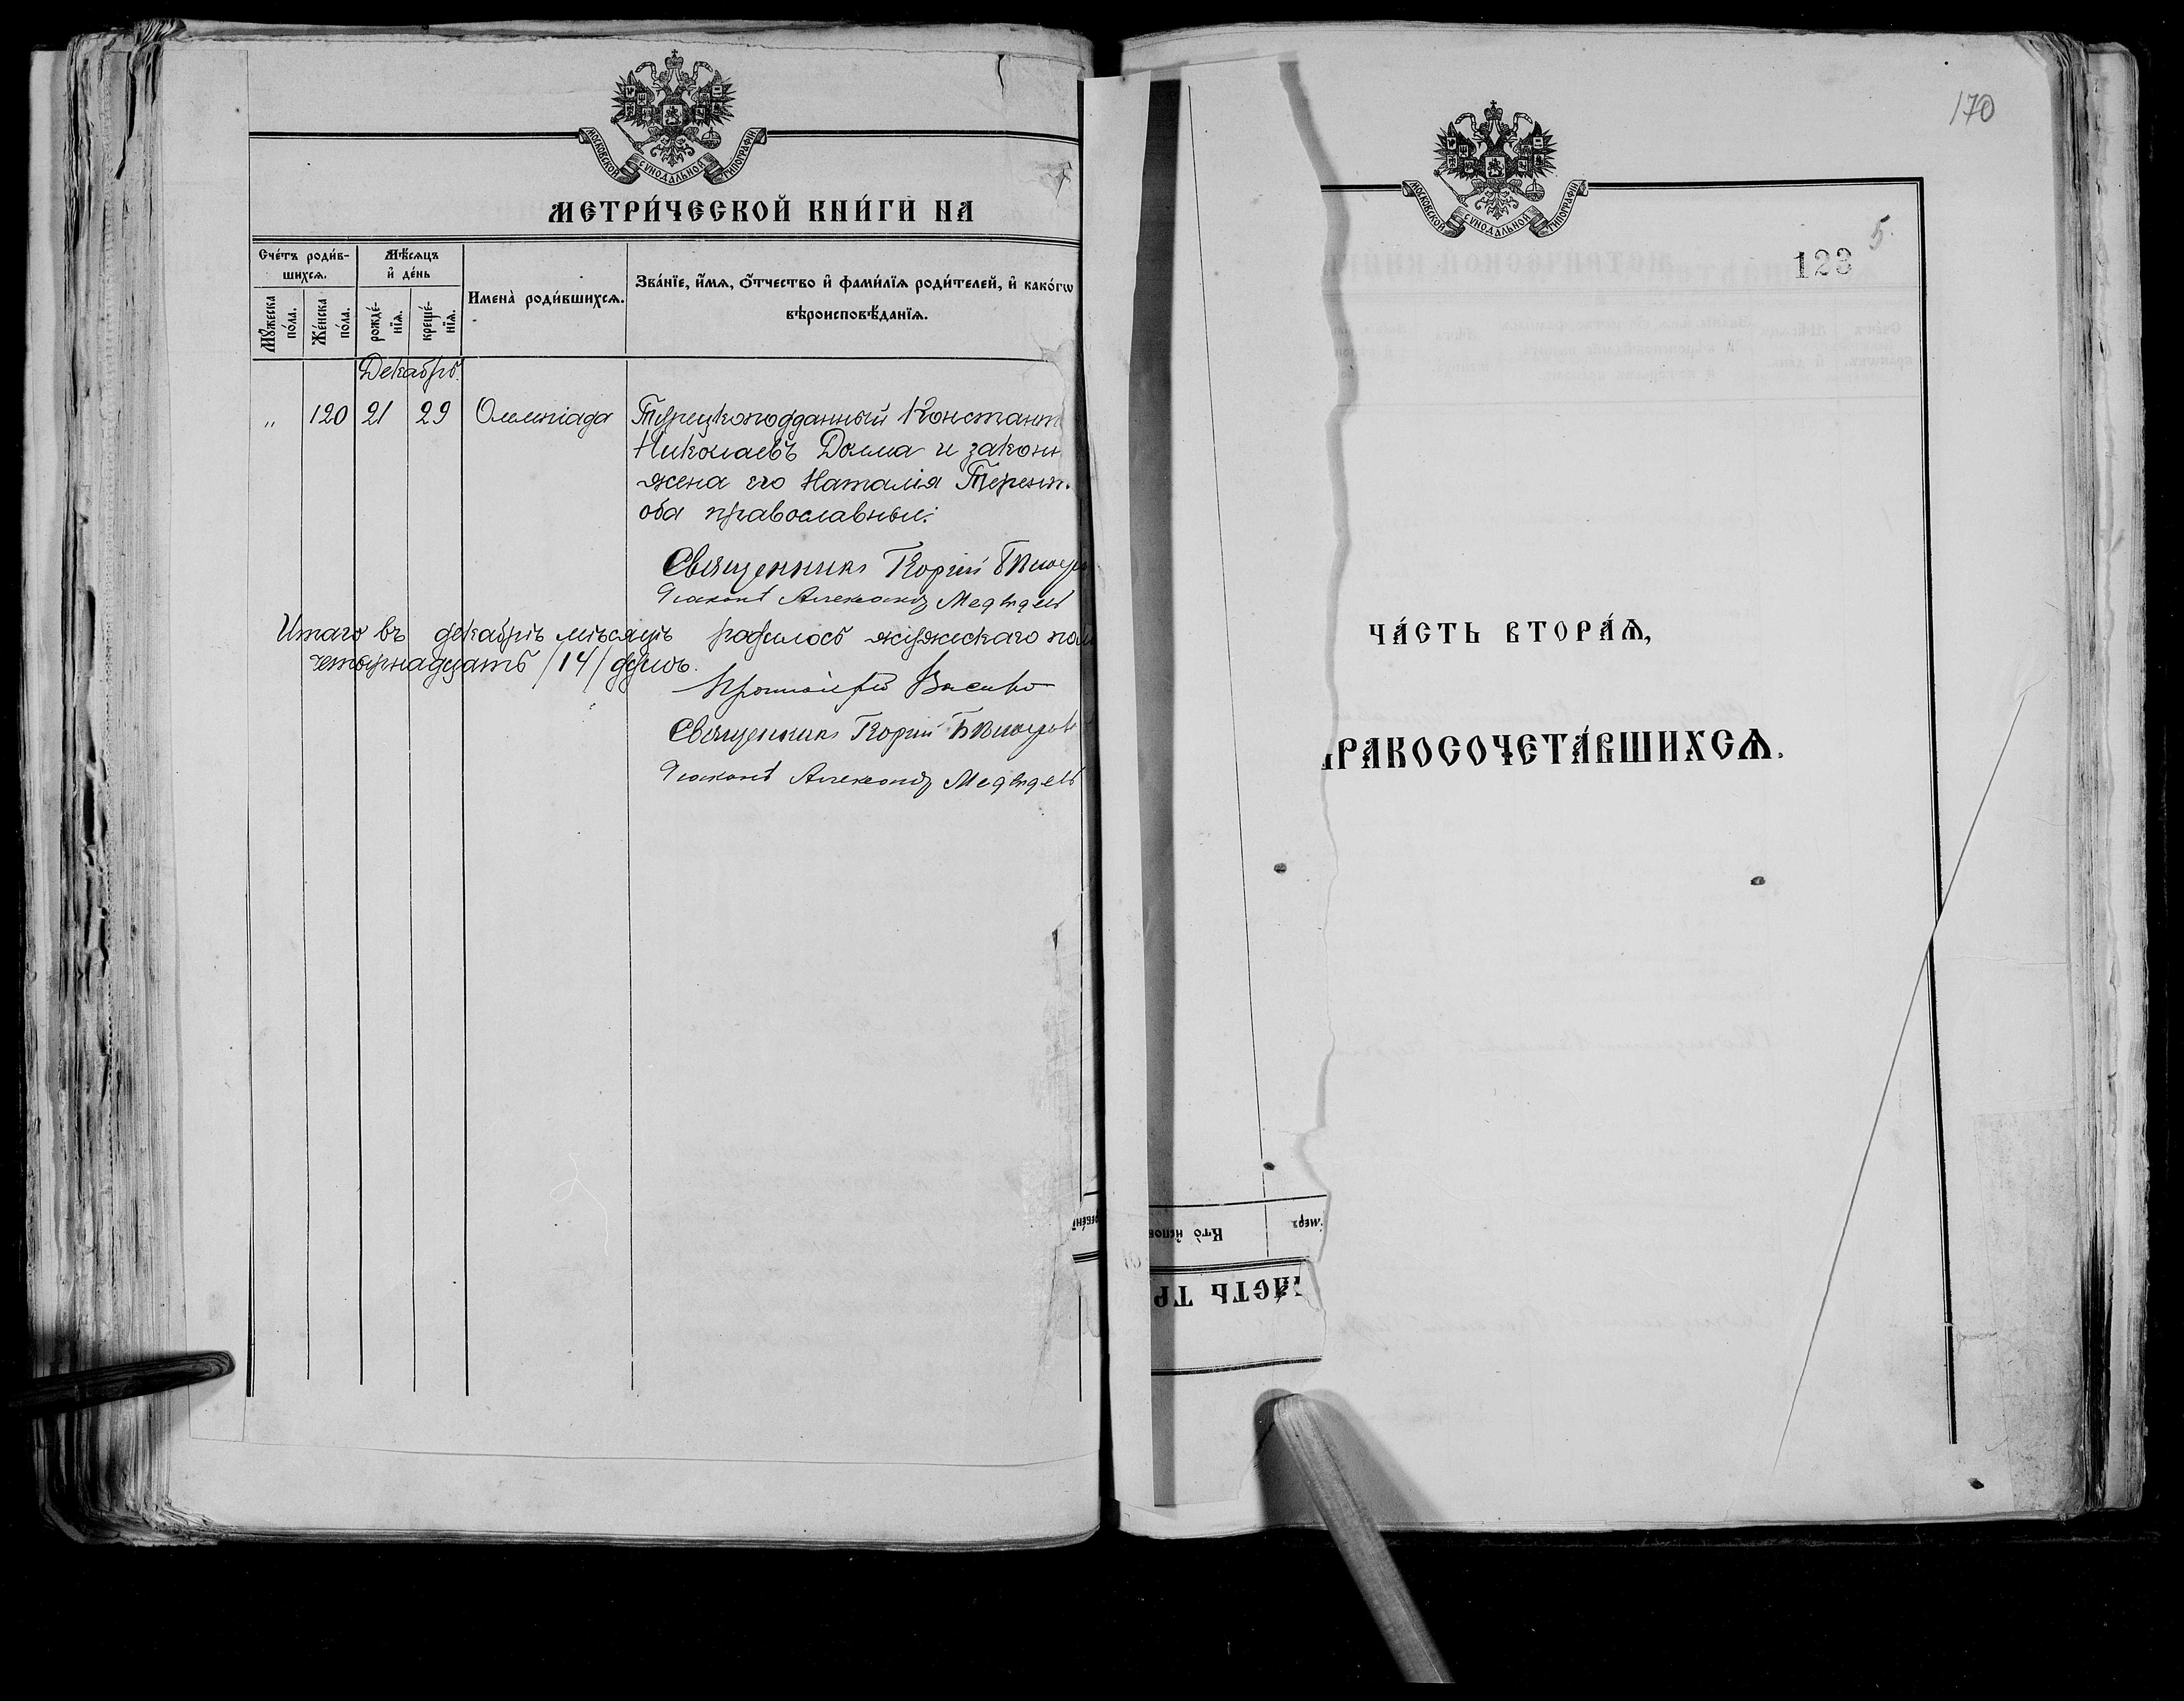 МОСКОВСКОЙ СѴНОДАЛЬНОЙ ТИПОГРАФІИ
МЕТРИ́ЧЕСКОЙ КНИ́ГИ НА
Сче́тъ роди́в-
шихсѧ.
Мѣ́сѧцъ
и҆ де́нь
Мꙋ́жеска
по́ла.
Же́нска
по́ла.
рожде́-
нїѧ.
креще́-
нїѧ.
Имена̀ роди́вшихсѧ.
Зва́нїе, и҆́мѧ, ѻ҆́тчество и҆ фами́лїѧ роди́телей, и҆ како́гѡ
вѣроисповѣ́данїѧ.
Декабрь.
„ 120 21 29 Олимпіада Турецкоподданный Константи
Николаевъ Долма и законн
жена его Наталія Терент.
оба православные.
Священникъ Георгій
Діаконъ Александръ Медвѣдевъ
Итого въ декабрѣ мѣсяцѣ родилось мужескаго пол
четырнадцать /14/ душъ.
Протоіерей
Священникъ Георгій
Діаконъ Александръ Медвѣдевъ
170
МОСКОВСКОЙ СѴНОДАЛЬНОЙ ТИПОГРАФІИ
5.
123
ЧА́СТЬ ВТОРА́Ѧ,
РАКОСОЧЕТА́ВШИХСѦ.
Кто̀ и҆спов
А́СТЬ ТР